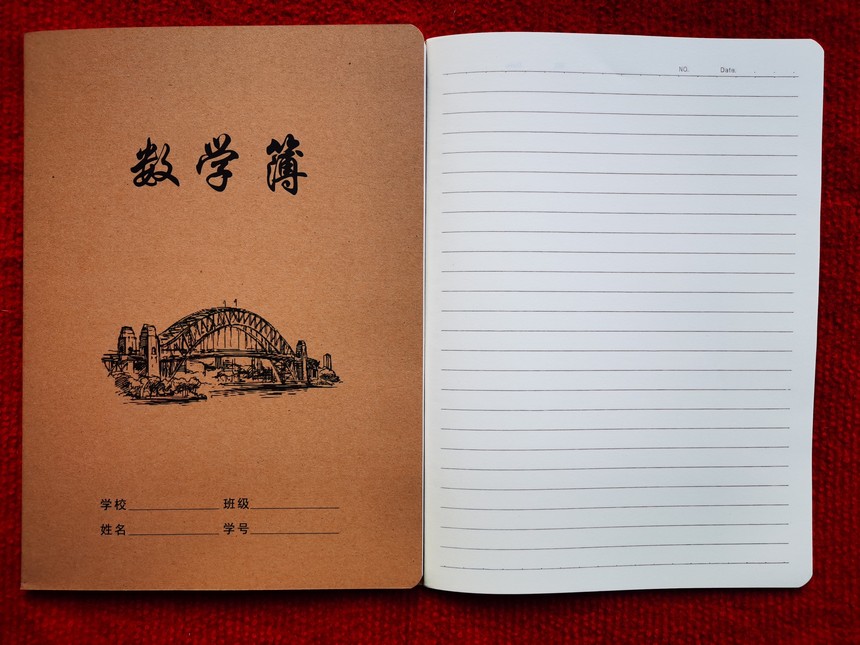 数学簿
学校 班级
姓名 学号
NO. Date.